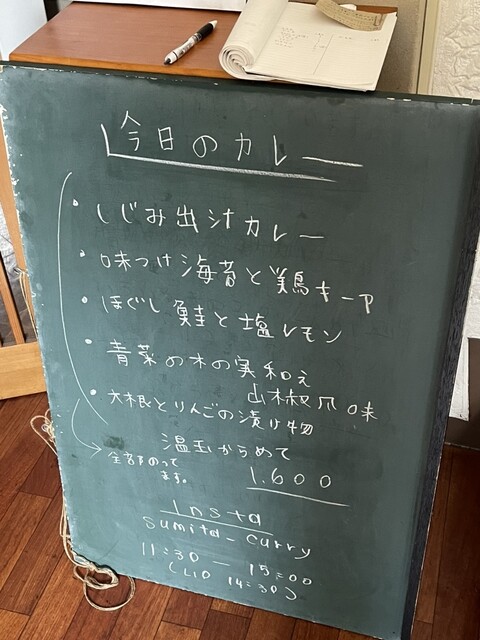 今日のカレー
・しじみ出汁カレー
・味つけ海苔と鶏キーマ
・ほぐし鮭と塩レモン
・青菜の木の実和え
山椒風味
・大根とりんごの漬け物
温玉からめて
全部のって
ます。
1.600
Insta
sumita-curry
11:30 ー 15:00
(LIO 14:30)